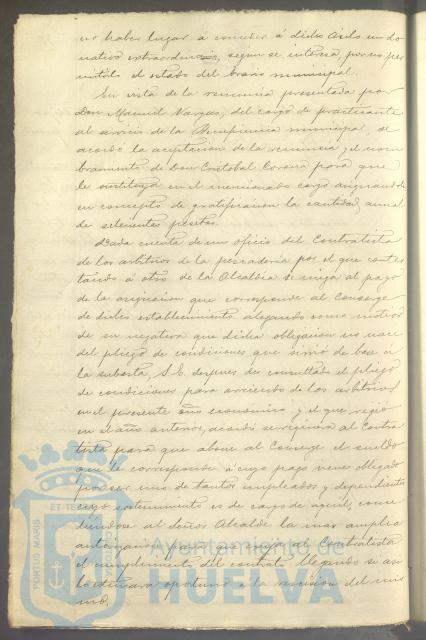 no haber lugar á conceder á dicho Asilo un do
nativo extraordinario, según se interesa, por no per
mitirlo el estado del Erario municipal.
En vista de la renuncia presentada por
Don Manuel Vargas, del cargo de practicante
al servicio de la Beneficencia municipal, se
acordó la aceptación de la renuncia y el nom
bramiento de Don Cristobal Corona para que
le sustituya en el mencionado cargo asignandole
en concepto de gratificación la cantidad anual
de setecientas pesetas.
Dada cuenta de un oficio del Contratista
de los arbitrios de la pescadería por el que contes
tando á otro de la Alcaldía se niega al pago
de la asignación que corresponde al Conserge
de dicho establecimiento alegando como motivo
de su negativa que dicha obligación no nace
del pliego de condiciones que sirvió de base a
la subasta, S. E. despues de consultado el pliego
de condiciones para arriendo de los arbitrios
en el presente año económico y el que rigió
en el año anterior, acordó se requiera al Contra
tista para que abone al Conserge el sueldo
que le corresponde á cuyo pago viene obligado
por ser uno de tantos empleados y dependientes
cuyo sostenimiento es de cargo de aquel, conce
diendose al Señor Alcalde la mas amplia
autorización para que exija al Contratista
el cumplimiento del contrato llegando si así
lo estimara oportuno a la rescisión del mis
mo.
PORTUS MARIS
ET TERRAE
Ayuntamiento de
HUELVA